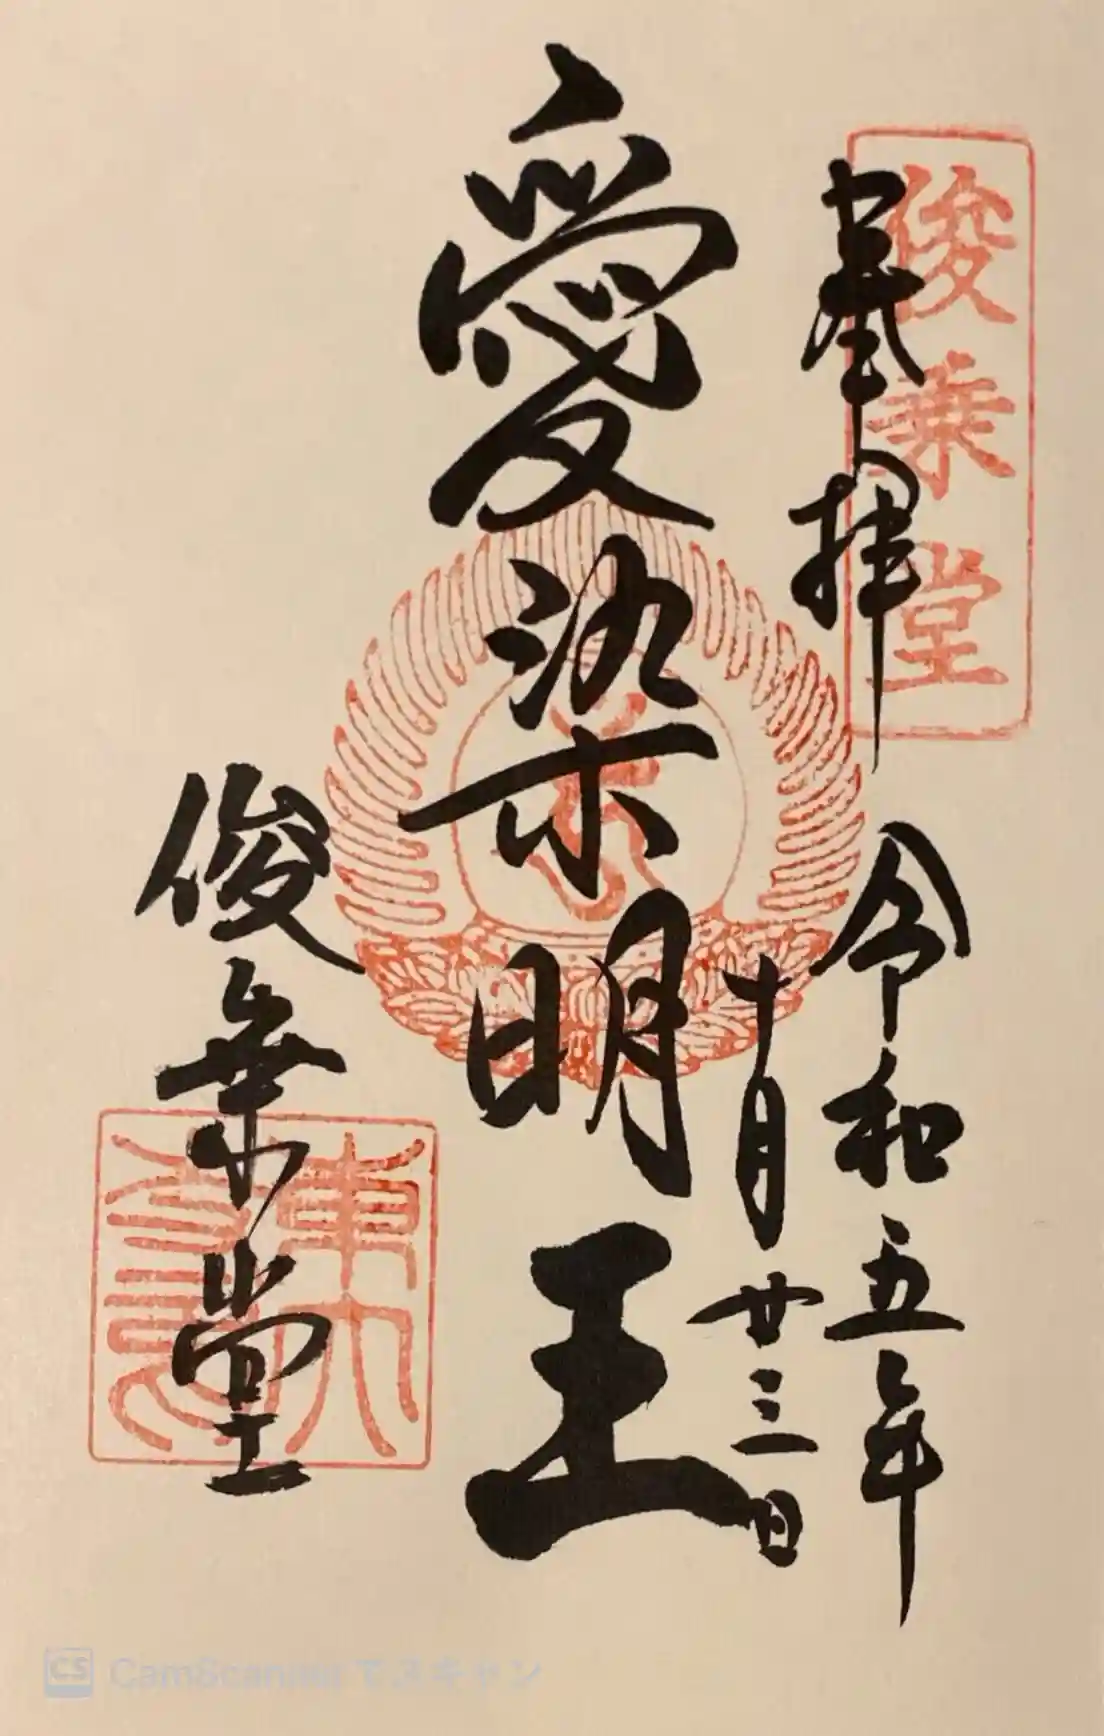 俊乗堂
奉拝
令和五年
十月廿三日
愛染明王
俊乗堂
CamScannerでスキャン